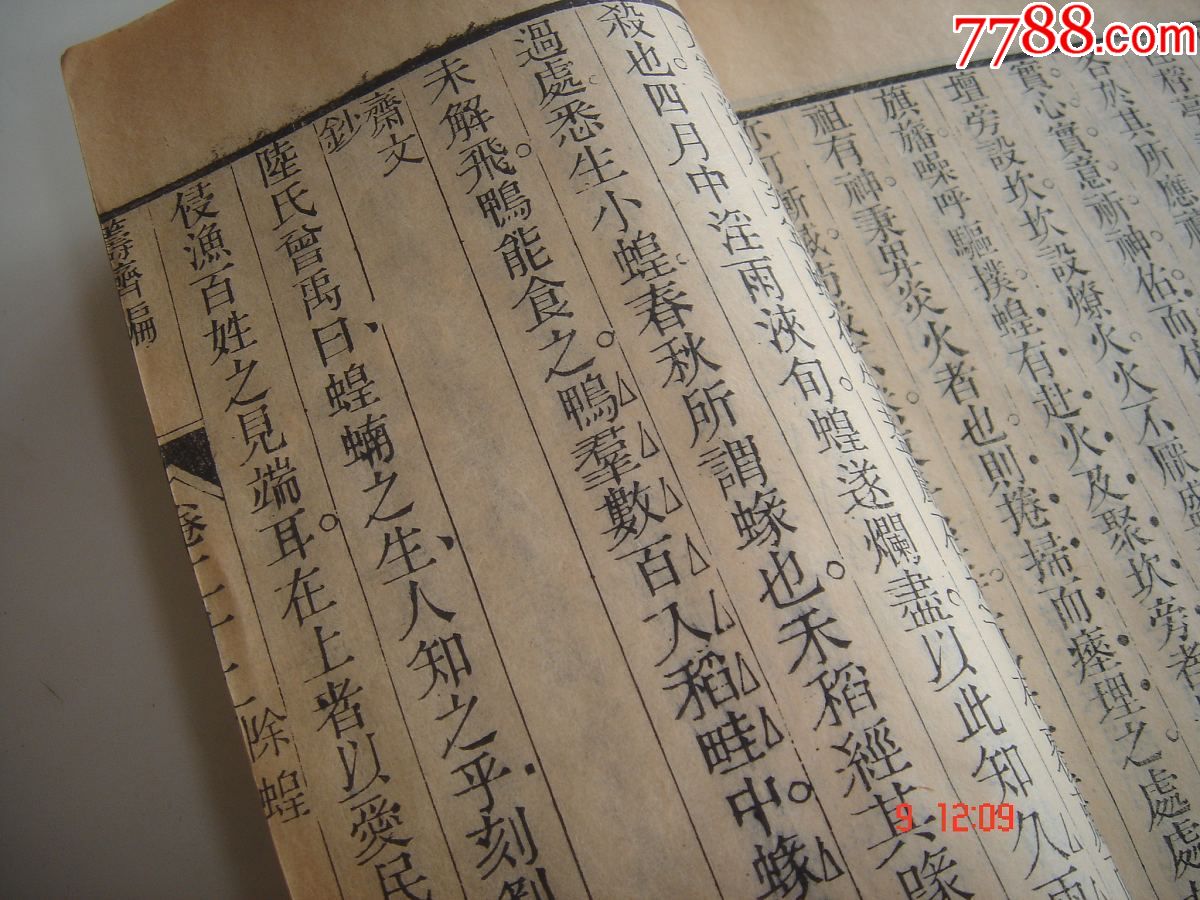 7788.com
往荐亭
各於其所應祀
實心實意祈神佑而
壇旁設坎坎設燎火火不厭盛
旗旛噪呼驅撲蝗有赴火及聚坎旁者
祖有神秉畀炎火者也則捲掃而瘞埋之處處
殺也四月中淫雨浹旬蝗遂爛盡以此知久雨
過處悉生小蝗春秋所謂蝝也禾稻經其喙
未解飛鴨能食之鴨羣數百入稻畦中蝝
齋文
鈔
陸氏曾禹曰蝗蝻之生人知之乎刻剝
侵漁百姓之見端耳在上者以愛民
籌濟編
卷二十二 除蝗
9 12:09